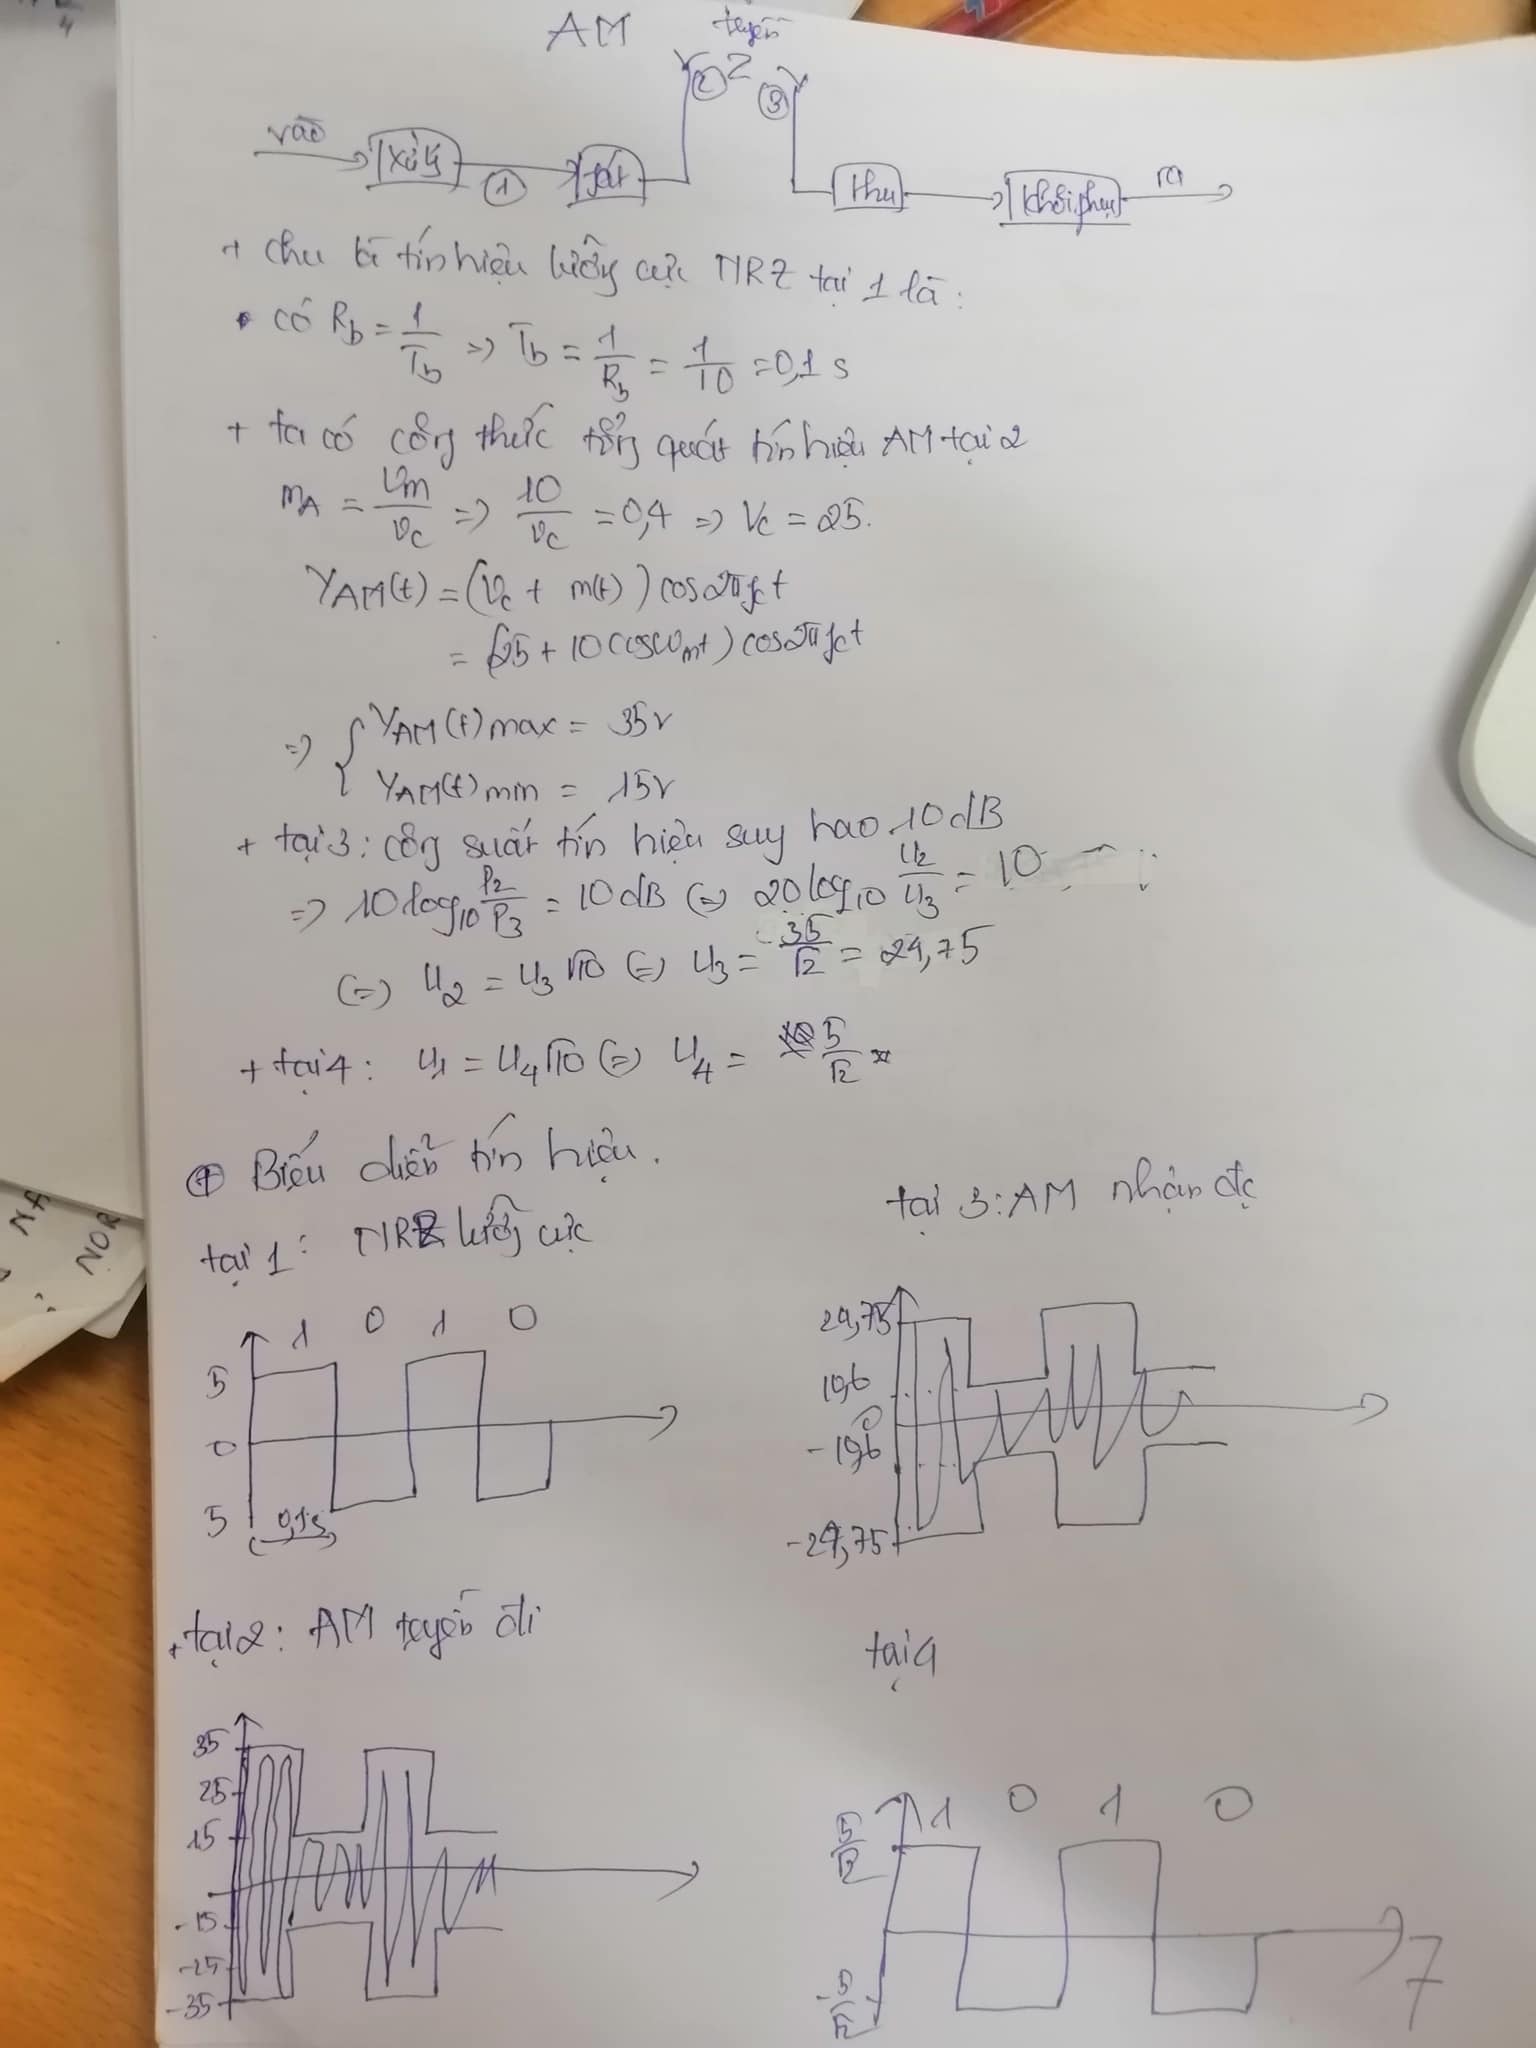 AM
tuyến
② ③
vào xử lý ① phát thu khôi phục ra
+ chu kì tín hiệu lưỡng cực NRZ tại 1 là:
• có Rb = 1/Tb => Tb = 1/Rb = 1/10 = 0,1 s
+ ta có công thức tổng quát tín hiệu AM tại 2
mA = Vm/Vc => 10/Vc = 0,4 => Vc = 25.
YAM(t) = (Vc + m(t)) cos2πfct
= (25 + 10cosωmt) cos2πfct
=> { YAM(t)max = 35V
YAM(t)min = 15V
+ tại 3: công suất tín hiệu suy hao 10 dB
=> 10log10 P2/P3 = 10 dB (=) 20log10 U2/U3 = 10
(=) U2 = U3√10 (=) U3 = 35/√2 = 24,75
+ tại 4: U1 = U4√10 (=) U4 = 5/√2
⊕ Biểu diễn tín hiệu.
tại 1: NRZ lưỡng cực
1 0 1 0
5
0
5
0,1s
tại 3: AM nhận đc
24,75
10,6
0
-10,6
-24,75
+ tại 2: AM truyền đi
35
25
15
-15
-25
-35
tại 4
1 0 1 0
5/√2
-5/√2
7
NOR